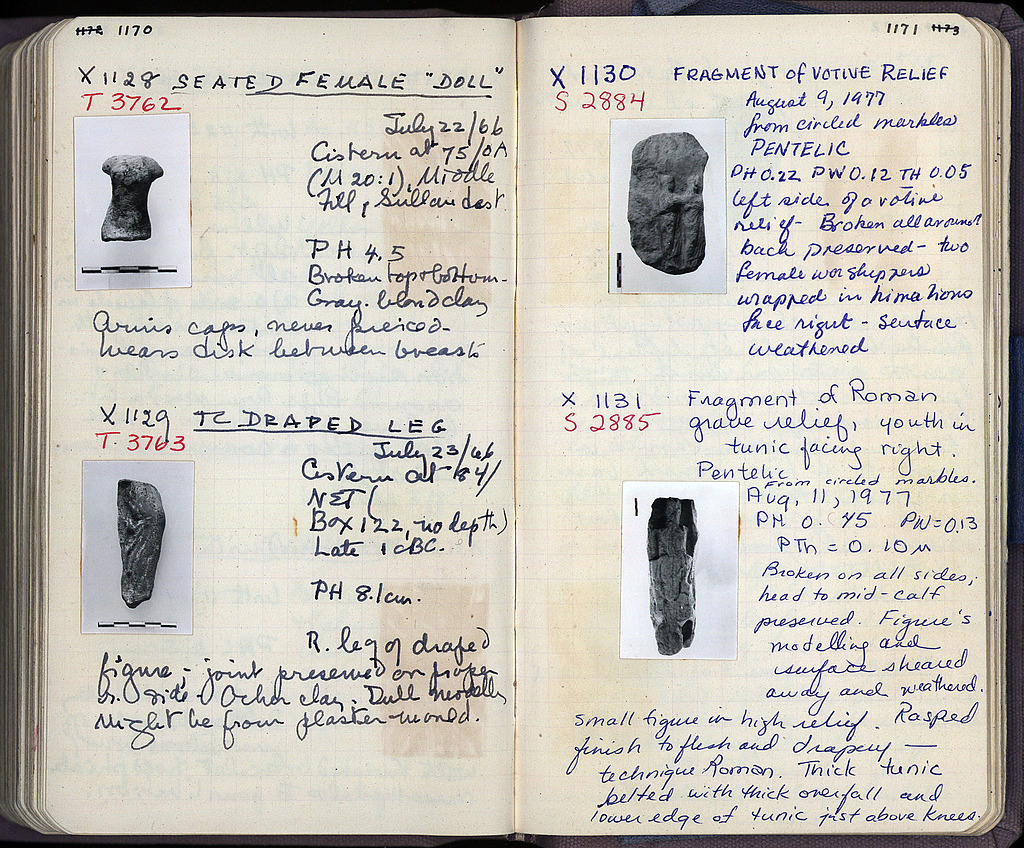 1172 1170
X 1128 SEATED FEMALE "DOLL"
T 3762
July 22/66
Cistern at 75/OA
(M 20:1), Middle
Fill, Sullan dest.
PH 4.5
Broken top & bottom-
Gray-blond clay
Arms caps, never pierced-
wears disk between breasts
X 1129 TC DRAPED LEG
T 3763
July 23/66
Cistern at 84/
NET (
Box 122, no depth)
Late 1 cBC.
PH 8.1cm.
R. leg of draped
figure; joint preserved on proper
r. side. Ochor clay. Dull modelling
Might be from plaster-mould.
1171 1173
X 1130 FRAGMENT of VOTIVE RELIEF
S 2884
August 9, 1977
from circled marbles
PENTELIC
PH 0.22 PW 0.12 TH 0.05
left side of a votive
relief- Broken all around
back preserved- two
female worshippers
wrapped in himations
face right - surface
weathered
X 1131 Fragment of Roman
S 2885 grave relief, youth in
tunic facing right.
Pentelic
From circled marbles.
Aug. 11, 1977
PH 0.45 PW=0.13
PTh = 0.10 m
Broken on all sides,
head to mid-calf
preserved. Figure's
modelling and
surface sheared
away and weathered.
Small figure in high relief. Rasped
finish to flesh and drapery —
technique Roman. Thick tunic
belted with thick overfall and
lower edge of tunic just above knees.